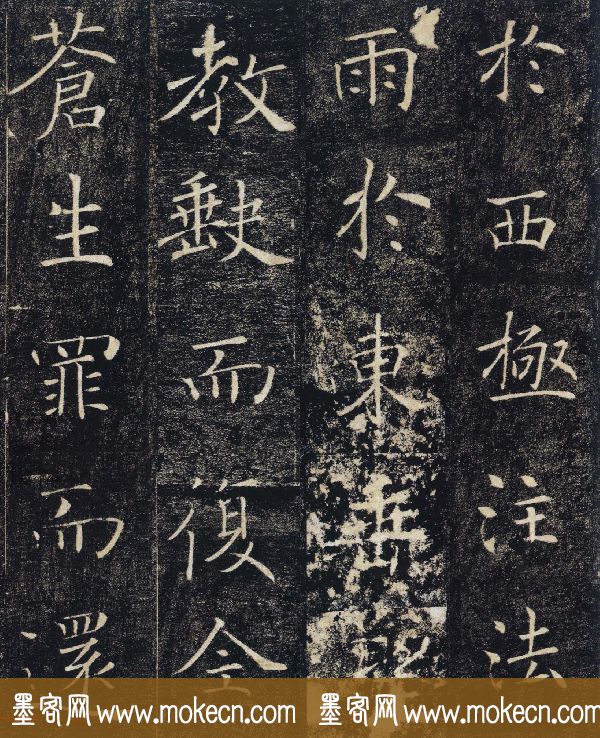 於西極注法
雨於東垂
教缺而復全
蒼生罪而還
墨客网 www.mokecn.com 墨客网 www.mokecn.com